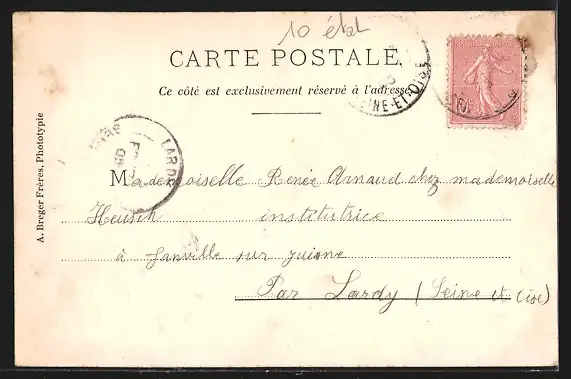 10 étal
CARTE POSTALE
Ce côté est exclusivement réservé à l'adresse
SEINE-ET-OISE
LARDY
A. Breger Frères, Phototypie
Mademoiselle Renée Arnaud chez mademoiselle
Heusch institutrice
à Janville sur juisne
Par Lardy (Seine et Oise)